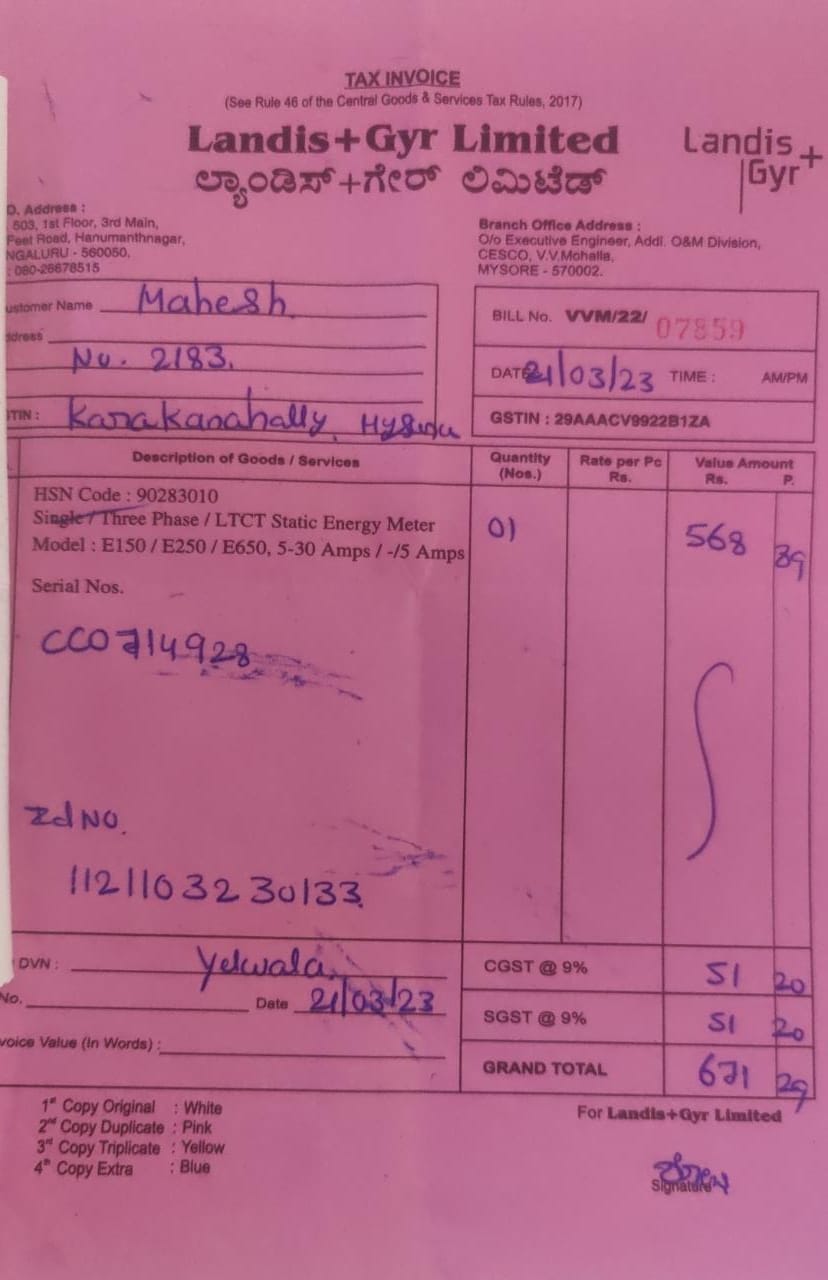 TAX INVOICE
(See Rule 46 of the Central Goods & Services Tax Rules, 2017)
Landis+Gyr Limited
ಲ್ಯಾಂಡಿಸ್+ಗೇರ್ ಲಿಮಿಟೆಡ್
Landis+
Gyr
O. Address :
503, 1st Floor, 3rd Main,
Feet Road, Hanumanthnagar,
NGALURU - 560050.
: 080-26678515
Branch Office Address :
O/o Executive Engineer, Addl. O&M Division,
CESCO, V.V.Mohalla,
MYSORE - 570002.
ustomer Name Mahesh
ddress
No. 2183.
TIN : Karakanahally,
BILL No. VVM/22/ 07859
DATE 21/03/23 TIME : AM/PM
GSTIN : 29AAACV9922B1ZA
Description of Goods / Services Quantity (Nos.) Rate per Pc Rs. Value Amount Rs. P.
HSN Code : 90283010
Single / Three Phase / LTCT Static Energy Meter 01 568 39
Model : E150 / E250 / E650, 5-30 Amps / -/5 Amps
Serial Nos.
CC0714928
Id NO.
1121103230133
DVN : Yelwala
No. Date 21/03/23
voice Value (In Words) :
CGST @ 9% 51 20
SGST @ 9% 51 20
GRAND TOTAL 671 29
1st Copy Original : White
2nd Copy Duplicate : Pink
3rd Copy Triplicate : Yellow
4th Copy Extra : Blue
For Landis+Gyr Limited
Signature